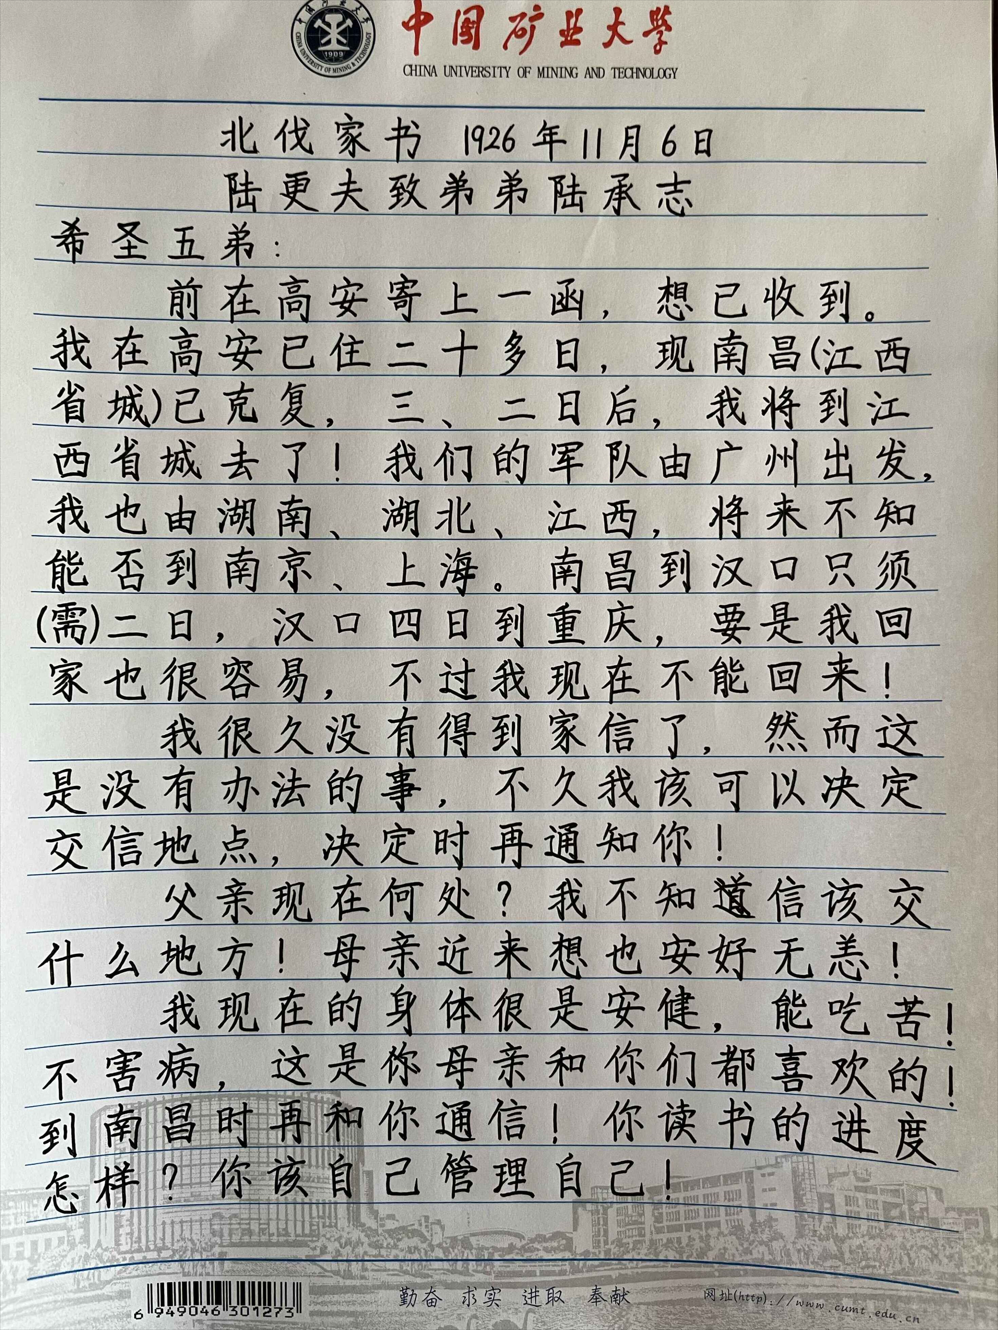 中国矿业大学
CHINA UNIVERSITY OF MINING AND TECHNOLOGY
中国矿业大学
CHINA UNIVERSITY OF MINING & TECHNOLOGY
1909
北伐家书 1926年11月6日
陆更夫致弟弟陆承志
希圣五弟：
前在高安寄上一函，想已收到。
我在高安已住二十多日，现南昌(江西
省城)已克复，三、二日后，我将到江
西省城去了！我们的军队由广州出发，
我也由湖南、湖北、江西，将来不知
能否到南京、上海。南昌到汉口只须
(需)二日，汉口四日到重庆，要是我回
家也很容易，不过我现在不能回来！
我很久没有得到家信了，然而这
是没有办法的事，不久我该可以决定
交信地点，决定时再通知你！
父亲现在何处？我不知道信该交
什么地方！母亲近来想也安好无恙！
我现在的身体很是安健，能吃苦！
不害病，这是你母亲和你们都喜欢的！
到南昌时再和你通信！你读书的进度
怎样？你该自己管理自己！
6 949046 301273
勤奋 求实 进取 奉献
网址(http)://www.cumt.edu.cn